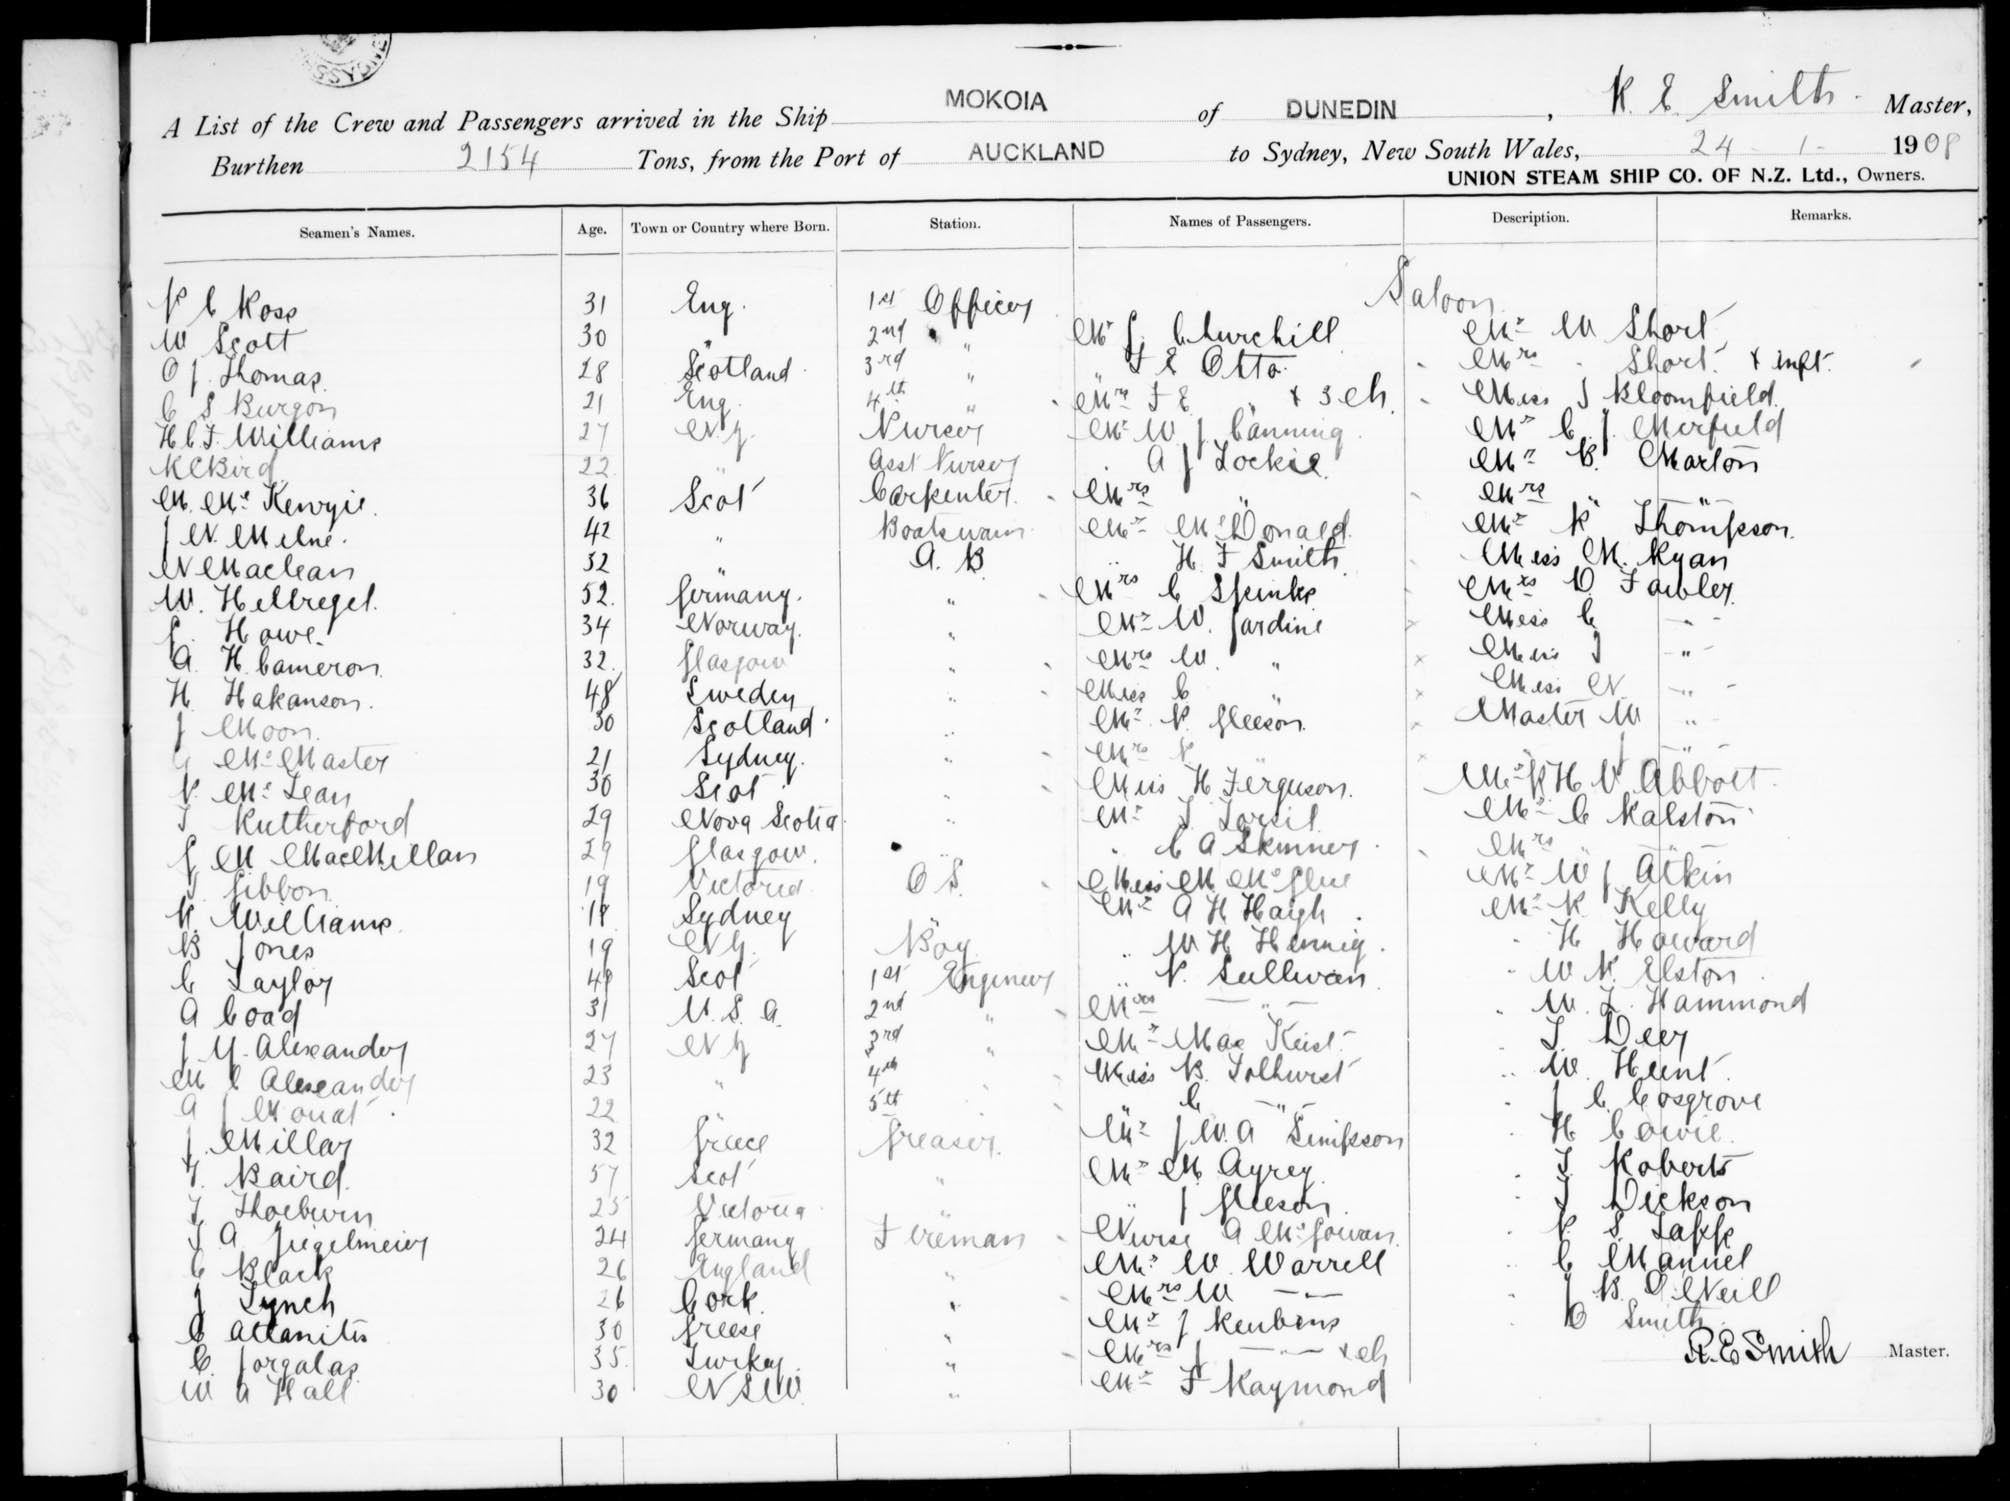 SYDNEY
A List of the Crew and Passengers arrived in the Ship MOKOIA of DUNEDIN, R. E. Smith. Master,
Burthen 2154 Tons, from the Port of AUCKLAND to Sydney, New South Wales, 24 - 1 - 1908
UNION STEAM SHIP CO. OF N.Z. Ltd., Owners.
Seamen's Names. Age. Town or Country where Born. Station. Names of Passengers. Description. Remarks.
Saloon
C Ross 31 Eng. 1st Officer
W Scott 30 " 2nd "
O J Thomas 28 Scotland 3rd "
C S Burgon 21 Eng. 4th "
H C F Williams 27 N.Z. Purser
R C Bird 22 " Asst Purser
M. McKenzie 36 Scot Carpenter
J N. Milne. 42 " Boatswain
N Maclean 32 " A. B
W. Hellregel 52 Germany. "
J. Howe. 34 Norway. "
A. H. Cameron 32 Glasgow "
H. Hakanson. 48 Sweden "
J Moon. 30 Scotland "
G McMaster 21 Sydney. "
McLean 30 Scot "
T Rutherford 29 Nova Scotia "
J M MacMillan 29 Glasgow. "
Gibbon 19 Victoria O S.
R. Williams 18 Sydney "
B Jones 19 N.Z. Boy
C Taylor 49 Scot 1st Engineer
A Coad 31 U. S. A. 2nd "
J Y. Alexander 27 N Z 3rd "
M C Alexander 23 " 4th "
A J Mouat 22 5th
J. Millar 32 Greece Greaser.
Baird. 57 Scot "
T. Thoeburn 25 Victoria "
T A Ziegelmeier 24 Germany Fireman
C Black 26 England "
J Lynch 26 Cork. "
C Attanitis 30 Greese "
C. Jorgalas 35 Turkey. "
W A Hall 30 N S W "
Mr J. Churchill
" F E Otto
Mrs F E " + 3 ch.
Mr W. J. Canning
" A J Lockie
Mrs "
Mr McDonald
" H. F Smith.
Mrs C Spinks
Mr W. Jardine
Mrs W. "
Miss C "
Mr P. Gleeson.
Mrs P. "
Miss H Ferguson.
Mr T. Torsil
" C A Skinner.
Miss M McGlue
Mr A H Haigh
" W H Hennig.
" P. Sullivan
Mrs - " -
Mr Mac Keist.
Miss B. Tolhurst
C - " -
Mr J W. A Simpson
Mr M. Ayrey
" J Gleeson
Nurse A McGowan.
Mr W. Warrell
Mrs W - " -
Mr J Reubens
Mrs J - " - + ch
Mr F Raymond
Mr W Short
Mrs " Short. + inft.
Miss J Bloomfield.
Mr C. J. Merfield
Mr B. Marton
Mrs " "
Mr R Thompson.
Miss M. Ryan
Mrs D. Fowler
Miss C - " -
Miss J - " -
Miss N. - " -
Master W "
J - " -
Mr R H V Abbott
Mr C Ralston
Mrs "
Mr W J Atkin
Mr R. Kelly
" H Howard
" W R. Elston
" W. L. Hammond
T. Deer
" W. Hunt.
" J C Cosgrove
" H Cowie.
" T. Roberts
" J Dickson
" P. S. Lapp
" C Manuel
" J B. O'Neill
" C Smith.
R. E Smith Master.